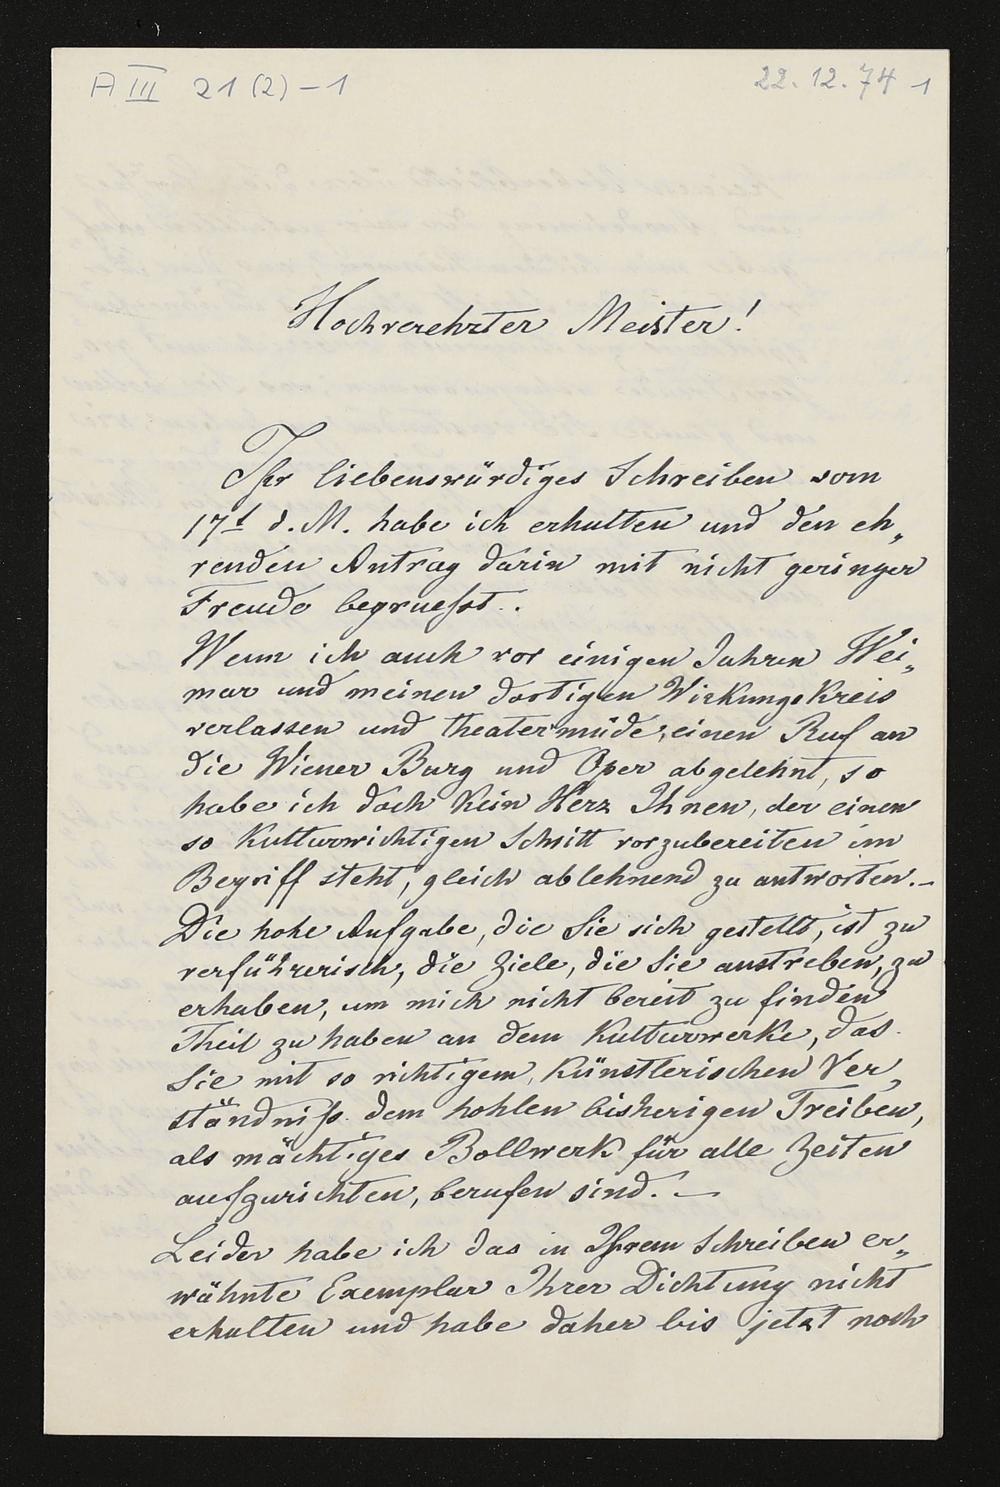 A III 21 (2) – 1
22. 12. 74 1
Hochverehrter Meister!
Ihr liebenswürdiges Schreiben vom
17t d. M. habe ich erhalten und den eh„
renden Antrag darin mit nicht geringer
Freude begruesst..
Wenn ich auch vor einigen Jahren Wei„
mar und meinen dortigen Wirkungskreis
verlassen und theatermüde, einen Ruf an
die Wiener Burg und Oper abgelehnt, so
habe ich doch kein Herz Ihnen, der einen
so kulturwichtigen Schritt vorzubereiten im
Begriff steht, gleich ablehnend zu antworten.–
Die hohe Aufgabe, die Sie sich gestellt, ist zu
verführerisch, die Ziele, die Sie anstreben, zu
erhaben, um mich nicht bereit zu finden
Theil zu haben an dem Kulturwerke, das
Sie mit so richtigem, künstlerischen Ver„
ständniß dem hohlen bisherigen Treiben,
als mächtiges Bollwerk für alle Zeiten
aufzurichten, berufen sind. –
Leider habe ich das in Ihrem Schreiben er„
wähnte Exemplar Ihrer Dichtung nicht
erhalten und habe daher bis jetzt noch